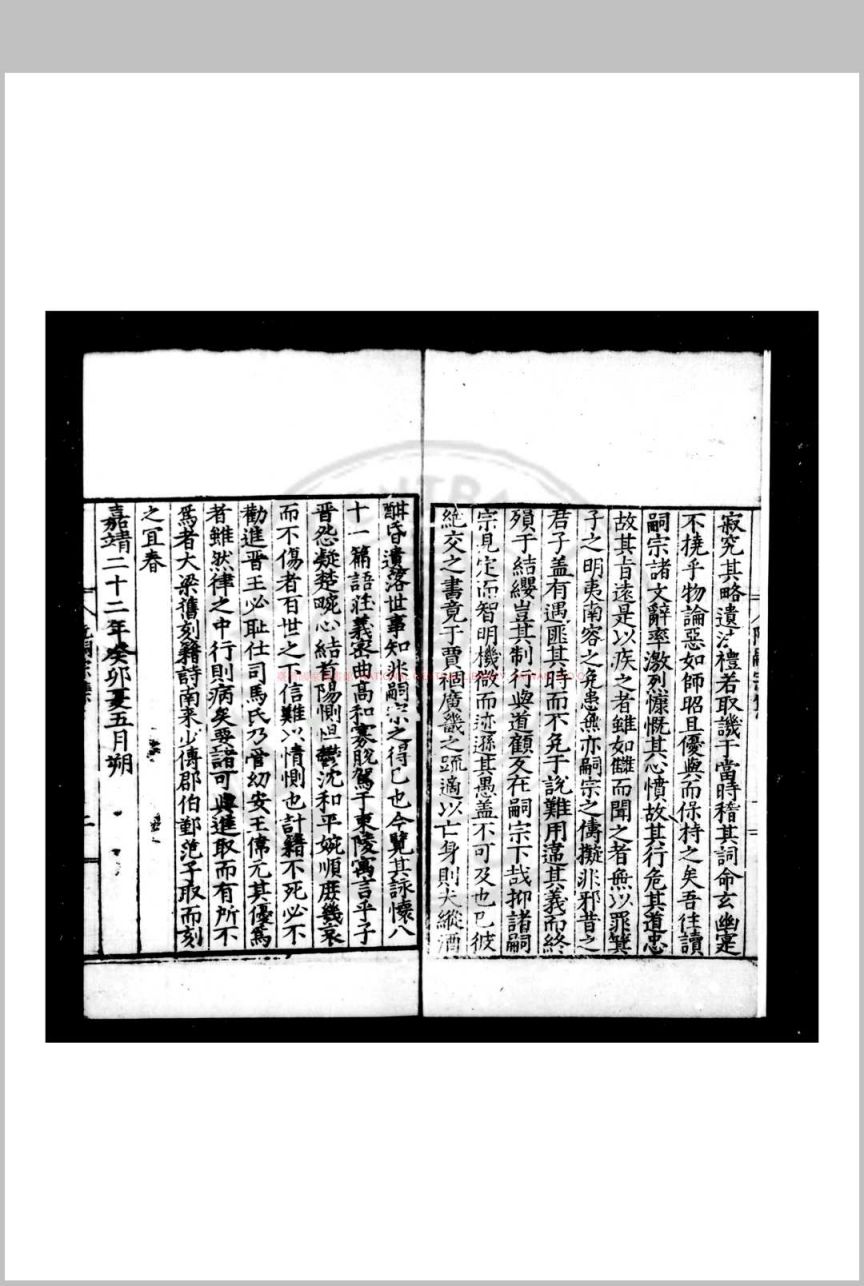 寂究其略遺法禮若取譏于當時稽其詞命玄幽寔
不撓乎物論惡如師昭且優與而保持之矣吾往讀
嗣宗諸文辭率激烈慷慨其心憤故其行危其道忠
故其旨遠是以疾之者雖如讎而聞之者無以罪箕
子之明夷南容之免患無亦嗣宗之儔擬非邪昔之
君子盖有遇匪其時而不免于說難用濡其義而終
殞于結纓豈其制行與道顧反在嗣宗下哉抑諸嗣
宗見定而智明機微而迹遜其愚盖不可及也已彼
絶交之書竟于賈禍廣譏之䟽適以亡身則夫縱酒
酣昏遺落世事知非嗣宗之得已也今覽其詠懷八
十一篇語莊義密曲高和寡脫駕于東陵寓言乎子
晋怨凝楚畹心結首陽惻怛鬱沈和平婉順庶幾哀
而不傷者百世之下信難以情惻也計籍不死必不
勸進晋王必恥仕司馬氏乃管幼安王儒元其優爲
者雖然律之中行則病矣要諸可與進取而有所不
爲者大梁舊刻籍詩南來少傳郡伯鄞范子取而刻
之宜春
嘉靖二十二年癸卯夏五月朔
阮嗣宗集